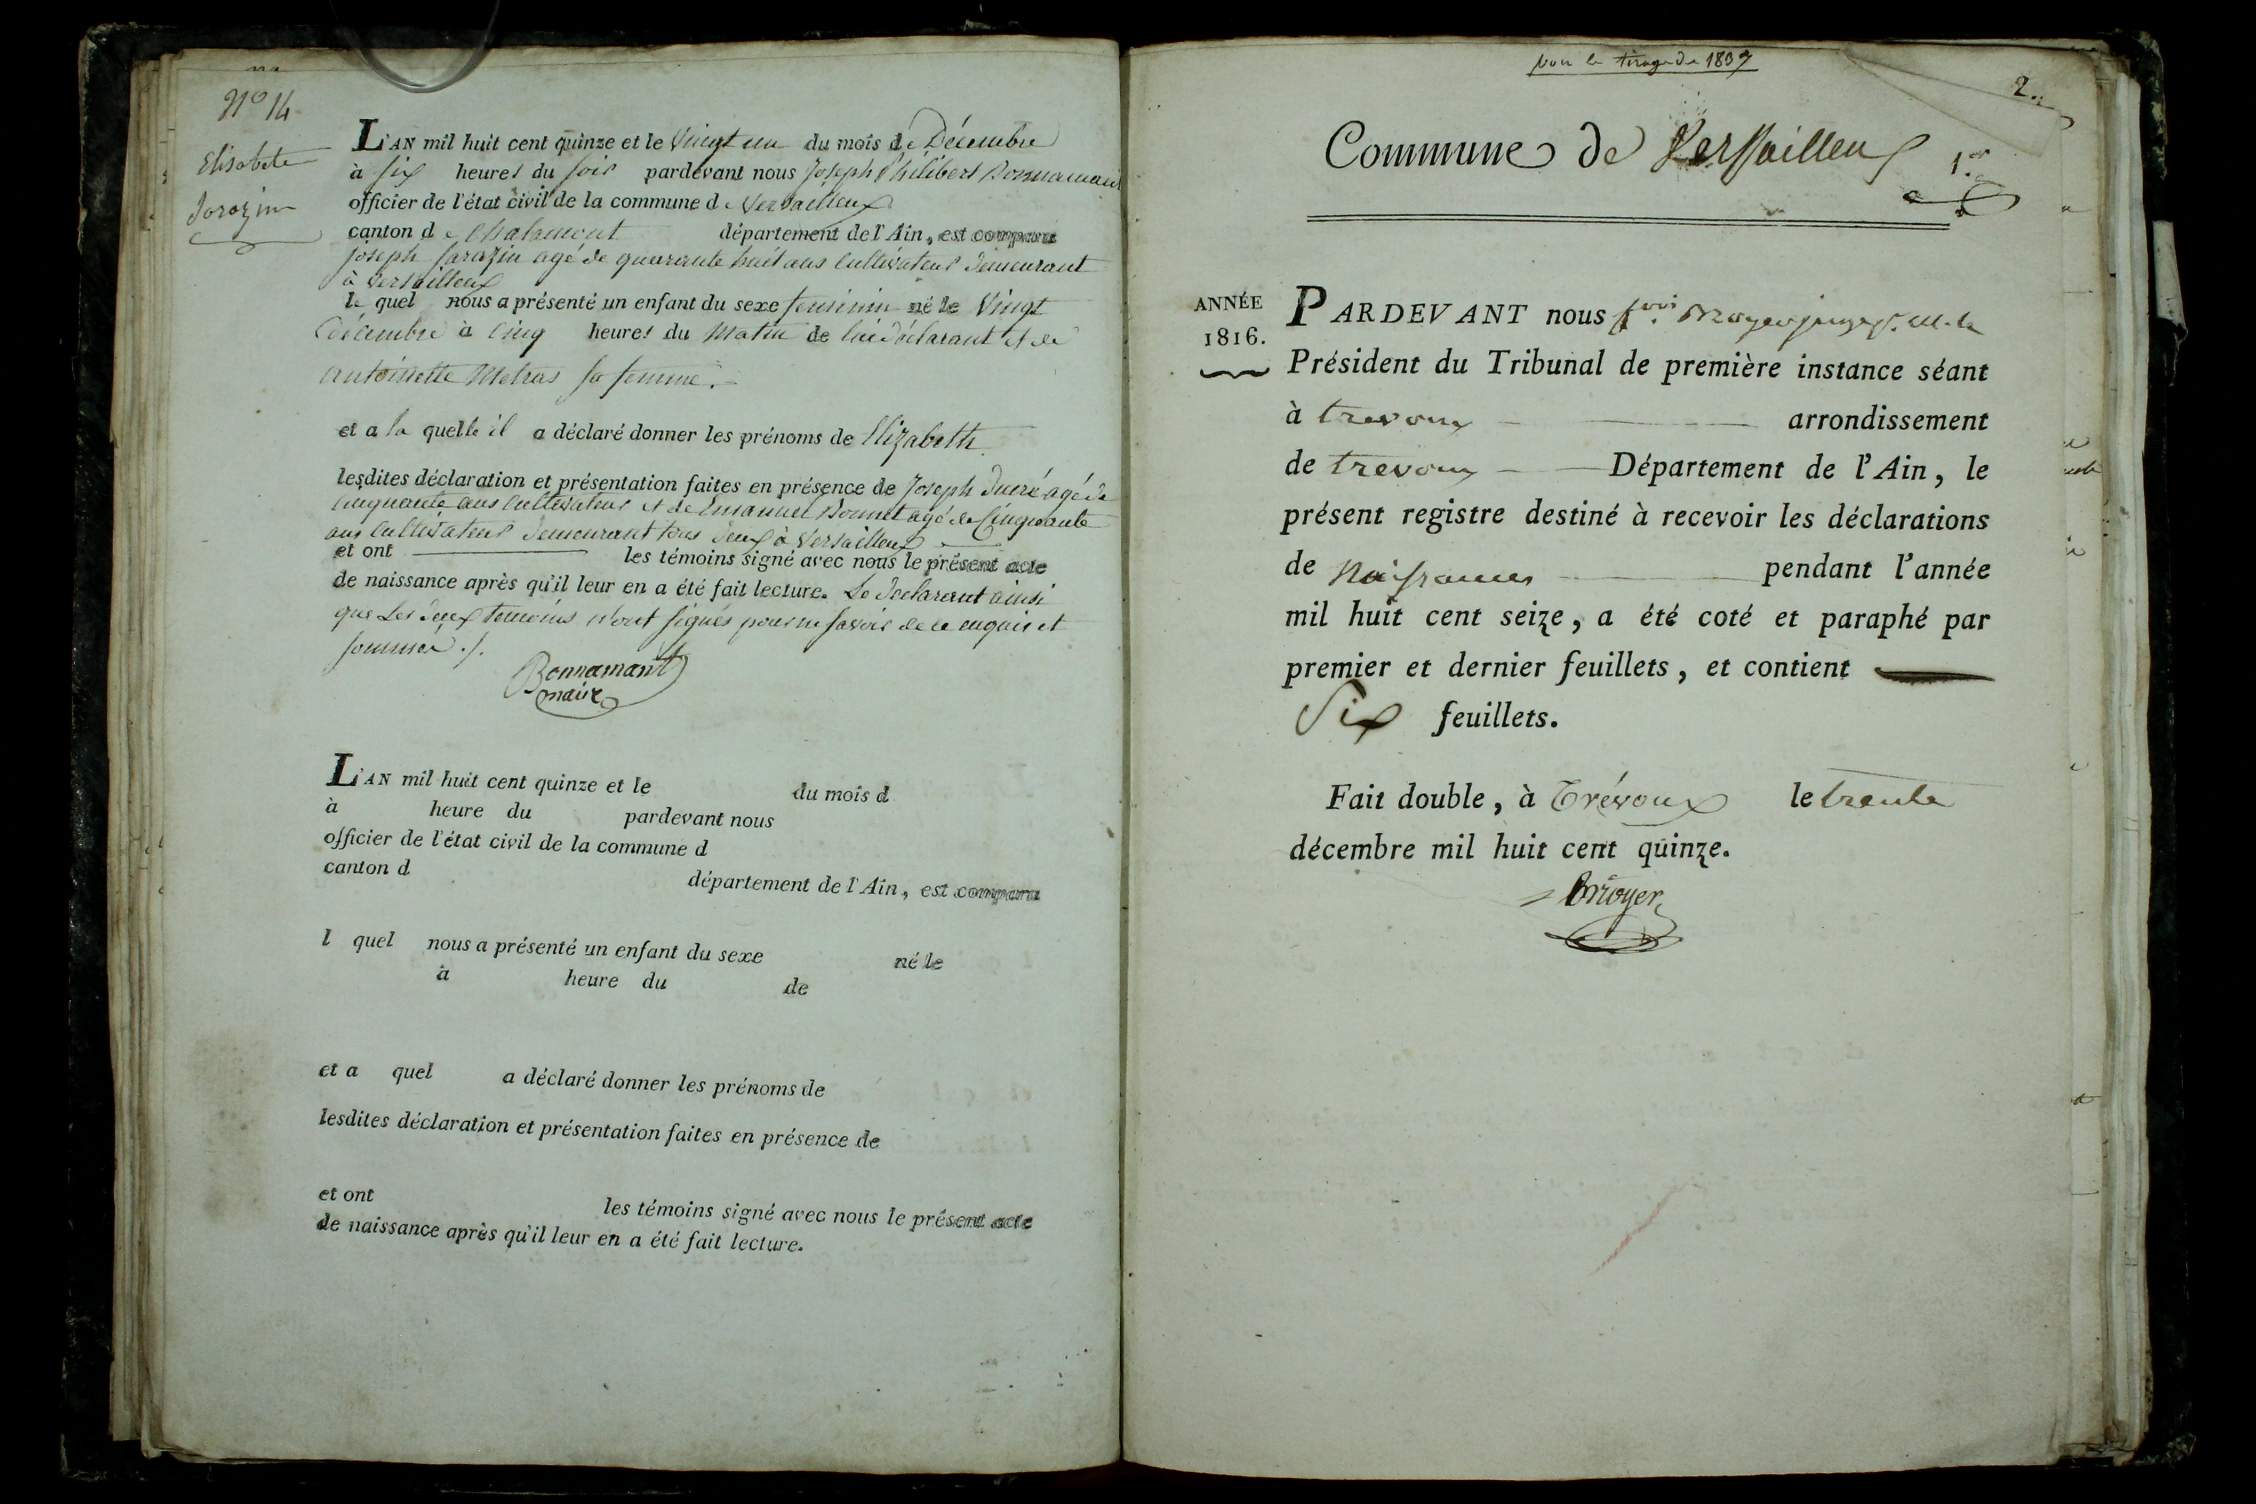 N.º 14
Elisabete
Sarazin
L'AN mil huit cent quinze et le Vingt un du mois de Décembre
à six heures du soir pardevant nous Joseph Philibert Bonnamant
officier de l'état civil de la commune de Versailleux
canton de Chalamont département de l'Ain, est comparu
joseph Sarazin agé de quarante huit ans Cultivateur demeurant
à Versailleux
le quel nous a présenté un enfant du sexe feminin né le Vingt
décembre à Cinq heures du Matin de lui déclarant et de
antoinette Metras sa femme.
et a la quelle il a déclaré donner les prénoms de Elizabeth
lesdites déclaration et présentation faites en présence de Joseph Ducré agé de
Cinquante ans Cultivateur et de Emanuel Bonnet agé de Cinquante
ans Cultivateur demeurant tous deux à Versailleux
et ont les témoins signé avec nous le présent acte
de naissance après qu'il leur en a été fait lecture. Le Déclarant ainsi
que Les deux temoins n'ont signés pour ne savoir de ce enquis et
sommé ./.
Bonnamant
maire
L'AN mil huit cent quinze et le du mois d
à heure du pardevant nous
officier de l'état civil de la commune d
canton d département de l'Ain, est comparu
l quel nous a présenté un enfant du sexe né le
à heure du de
et a quel a déclaré donner les prénoms de
lesdites déclaration et présentation faites en présence de
et ont les témoins signé avec nous le présent acte
de naissance après qu'il leur en a été fait lecture.
pour le tirage de 1837
2.
Commune de Versailleux
1.er
ANNÉE
1816.
PARDEVANT nous
Président du Tribunal de première instance séant
à trevoux arrondissement
de trevoux Département de l'Ain, le
présent registre destiné à recevoir les déclarations
de Naissances pendant l'année
mil huit cent seize, a été coté et paraphé par
premier et dernier feuillets, et contient
Six feuillets.
Fait double, à Trévoux le trente
décembre mil huit cent quinze.